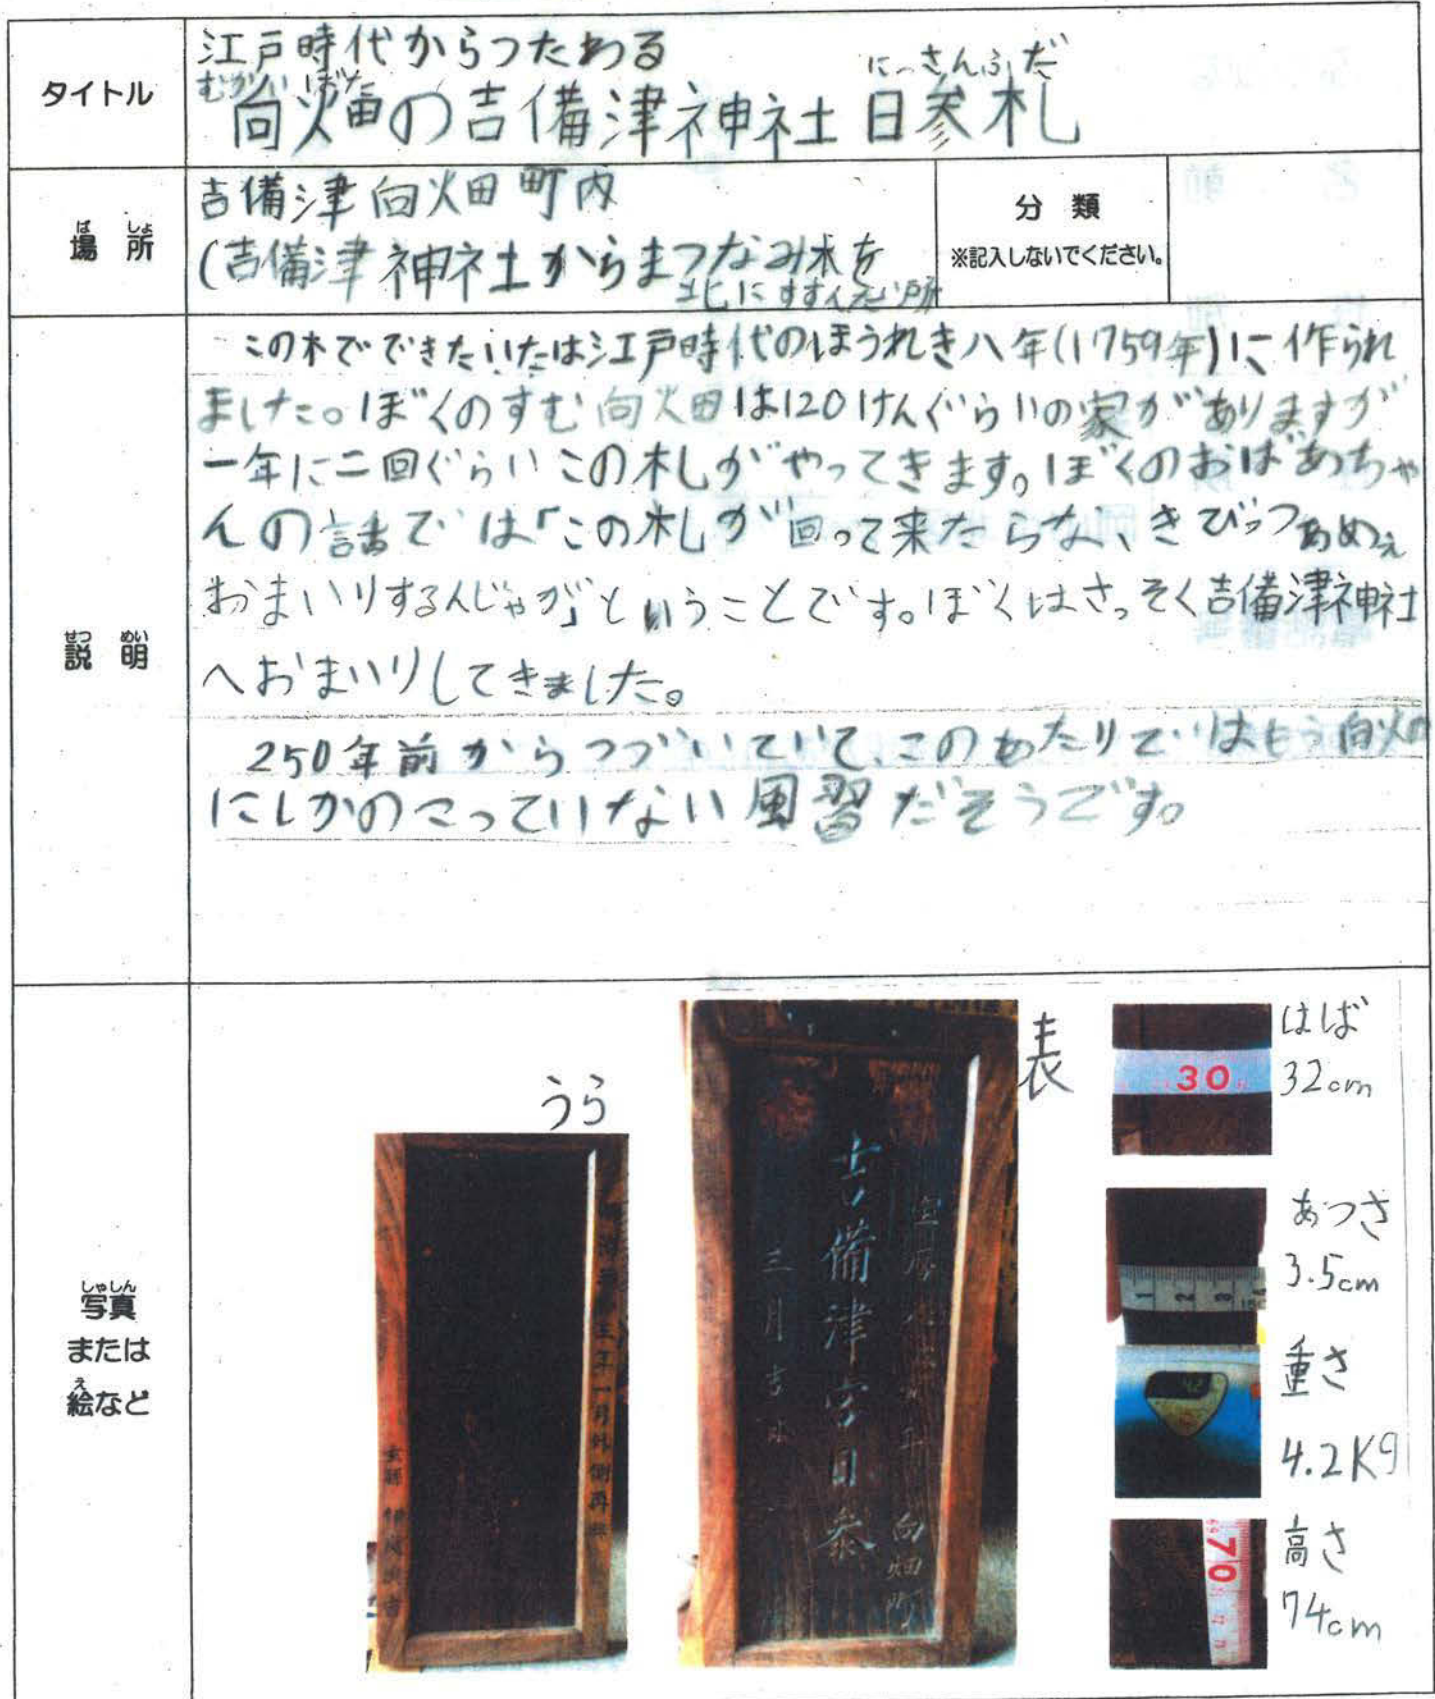 タイトル
江戸時代からつたわる
むかいばた
にっさんふだ
向畑の吉備津神社 日参札
ばしょ
場所
吉備津向畑町内
(吉備津神社からまつなみ木を
北にすすんだ所
分類
※記入しないでください。
せつめい
説明
この木でできたいたは江戸時代のほうれき八年(1759年)に作られ
ました。ぼくのすむ向畑は120けんぐらいの家がありますが
一年に二回ぐらいこの札がやってきます。ぼくのおばあちゃ
んの話では「この札が回って来たらな、きびつぁめぇ
おまいりするんじゃが」ということです。ぼくはさっそく吉備津神社
へおまいりしてきました。
250年前からつづいていて、このあたりではもう向畑
にしかのこっていない風習だそうです。
しゃしん
写真
または
え
絵など
うら
年一月外側再
表
吉備津宮日参
三月吉
向畑町
はば
32cm
30
あつさ
3.5cm
1 2 3
重さ
4.2Kg
高さ
74cm
70